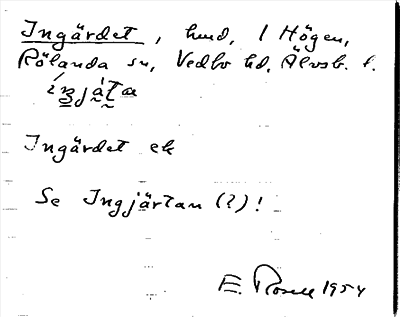 Ingärdet, hmd, 1 Högen,
Rölanda sn, Vedbo hd, Älvsb. l.
Ingärdet ek
Se Ingjärtan (?)!
E. Rosell 1954